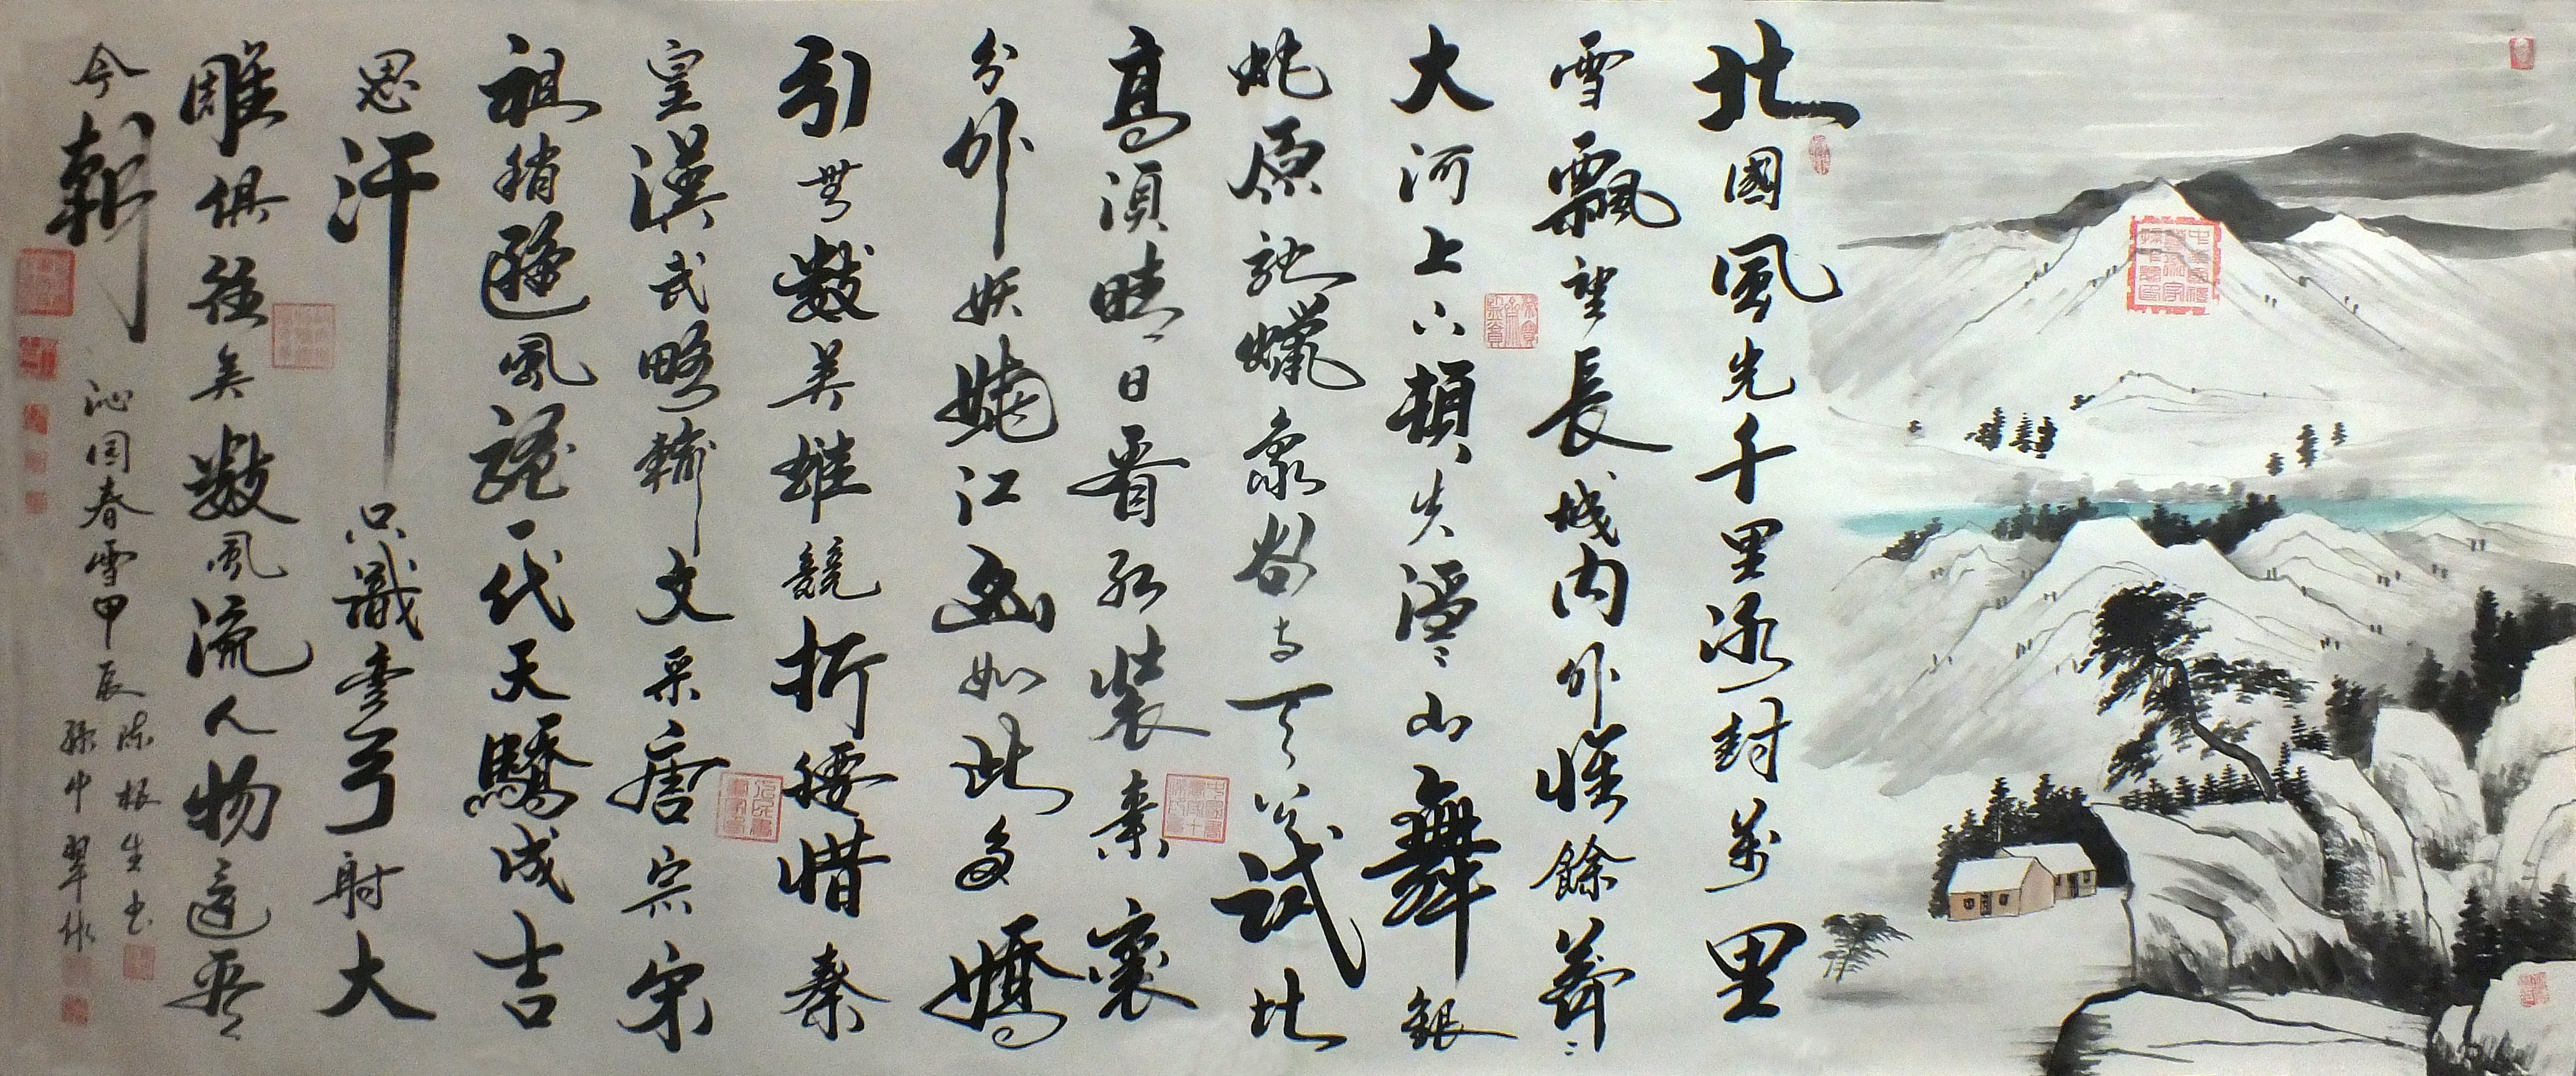 北國風光千里冰封萬里
雪飄望長城内外惟餘莽〻
大河上下頓失滔〻山舞銀
蛇原馳蠟象欲与天公試比
高須晴日看紅裝素裹
分外妖嬈江山如此多嬌
引無數英雄競折腰惜秦
皇漢武略輸文采唐宗宋
祖稍遜風騷一代天驕成吉
思汗只識彎弓射大
雕俱往矣數風流人物還看
今朝
沁园春雪甲辰
陈根生书
孫中翠作